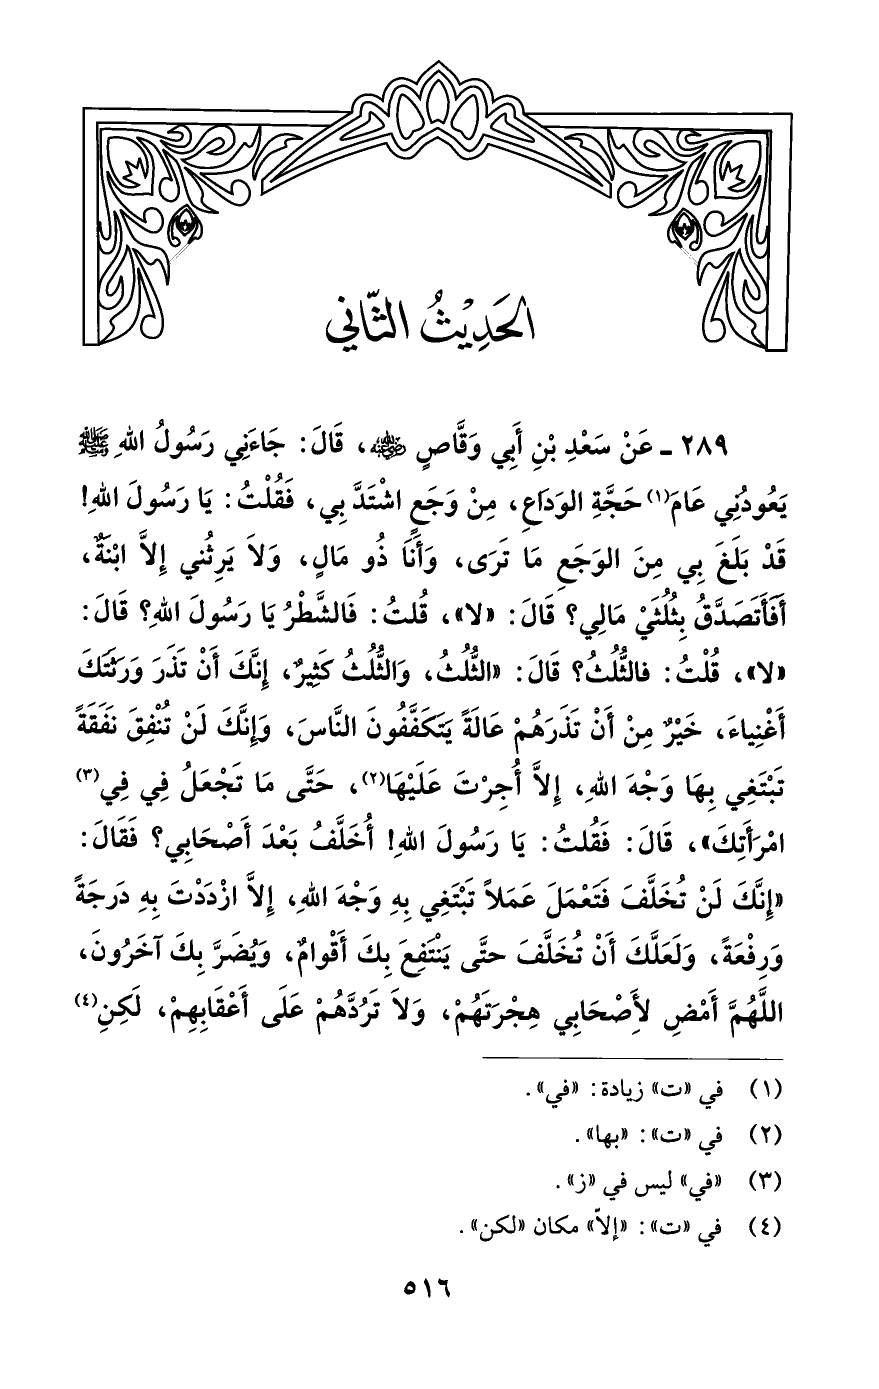 الحَدِيْثُ الثَّاني
٢٨٩ ـ عَنْ سَعْدِ بْنِ أَبِي وَقَّاصٍ ﵁، قَالَ: جَاءَنِي رَسُولُ اللهِ ﷺ
يَعُودُنِي عَامَ(١) حَجَّةِ الوَدَاعِ، مِنْ وَجَعٍ اشْتَدَّ بِي، فَقُلْتُ: يَا رَسُولَ اللهِ!
قَدْ بَلَغَ بِي مِنَ الوَجَعِ مَا تَرَى، وَأَنَا ذُو مَالٍ، وَلاَ يَرِثُني إِلاَّ ابْنَةٌ،
أَفَأَتَصَدَّقُ بِثُلُثَيْ مَالِي؟ قَالَ: «لا»، قُلتُ: فَالشَّطْرُ يَا رَسُولَ اللهِ؟ قَالَ:
«لا»، قُلْتُ: فالثُّلُثُ؟ قَالَ: «الثُّلُثُ، وَالثُّلُثُ كَثِيرٌ، إِنَّكَ أَنْ تَذَرَ وَرَثَتَكَ
أَغْنِياءَ، خَيْرٌ مِنْ أَنْ تَذَرَهُمْ عَالَةً يَتَكَفَّفُونَ النَّاسَ، وَإِنَّكَ لَنْ تُنْفِقَ نَفَقَةً
تَبْتَغِي بِهَا وَجْهَ اللهِ، إِلاَّ أُجِرْتَ عَلَيْهَا(٢)، حَتَّى مَا تَجْعَلُ فِي فِي(٣)
امْرَأَتِكَ»، قَالَ: فَقُلتُ: يَا رَسُولَ اللهِ! أُخَلَّفُ بَعْدَ أَصْحَابِي؟ فَقَالَ:
«إِنَّكَ لَنْ تُخَلَّفَ فَتَعْمَلَ عَمَلاً تَبْتَغِي بِهِ وَجْهَ اللهِ، إِلاَّ ازْدَدْتَ بِهِ دَرَجَةً
وَرِفْعَةً، وَلَعَلَّكَ أَنْ تُخَلَّفَ حتَّى يَنْتَفِعَ بِكَ أَقْوامٌ، وَيُضَرَّ بِكَ آخَرُونَ،
اللَّهُمَّ أَمْضِ لأَصْحَابِي هِجْرَتَهُمْ، وَلاَ تَرُدَّهُمْ عَلَى أَعْقَابِهِمْ، لَكِنِ(٤)
(١) في «ت» زيادة: «في».
(٢) في «ت»: «بها».
(٣) «في» ليس في «ز».
(٤) في «ت»: «إلاّ» مكان «لكن».
٥١٦